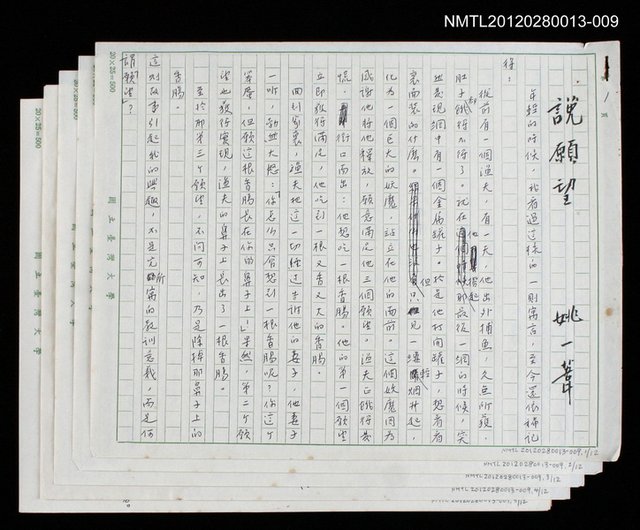 NMTL20120280013-009
1
頁
說願望
姚一葦
年輕的時候，我看過這樣的一則寓言，至今還依稀記
得：
從前有一個漁夫，有一天，他出外捕魚，久無所獲，
肚子餓得不得了。就在他撈起那最後一網的時候，突
然發現網中有一個金屬罐子。於是他打開罐子，想看看
裏面裝的什麼。但只見一縷輕烟升起，
化為一個巨大的妖魔，站立在他的面前。這個妖魔因為
感謝他將他釋放，願意滿足他三個願望。漁夫正餓得發
慌，衝口而出：他想吃一根香腸。他的第一個願望
立即獲得滿足，他吃到一根又香又大的香腸。
回到家裏，漁夫把這一切經過告訴他的妻子。他妻子
一聽，勃然大怒：「你怎只會想到一根香腸呢？你這個
笨蛋，但願這根香腸長在你的鼻子上！」果然，第二個願
望也獲得實現，漁夫的鼻子上長出了一根香腸。
至於那第三個願望，不問可知，乃是除掉那鼻子上的
香腸。
這則故事引起我的興趣，不是它所寓的教訓意義，而是何
謂願望？
20×25=500
國立臺灣大學
20×25=500
國立臺灣大學
NMTL20120280013-009, 1/12
NMTL20120280013-009, 2/12
NMTL20120280013-009, 3/12
NMTL20120280013-009, 4/12
NMTL20120280013-009, 5/12